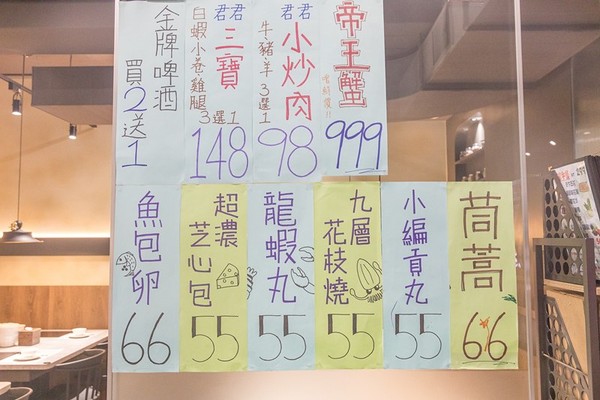 帝王蟹
999
君君
小炒肉
牛豬羊3選1
98
君君
三寶
白蝦小卷雞腿
3選1
148
金牌啤酒
買2送1
茼蒿
66
小編貢丸
55
九層
花枝燒
55
龍蝦丸
55
超濃
芝心包
55
魚包卵
66